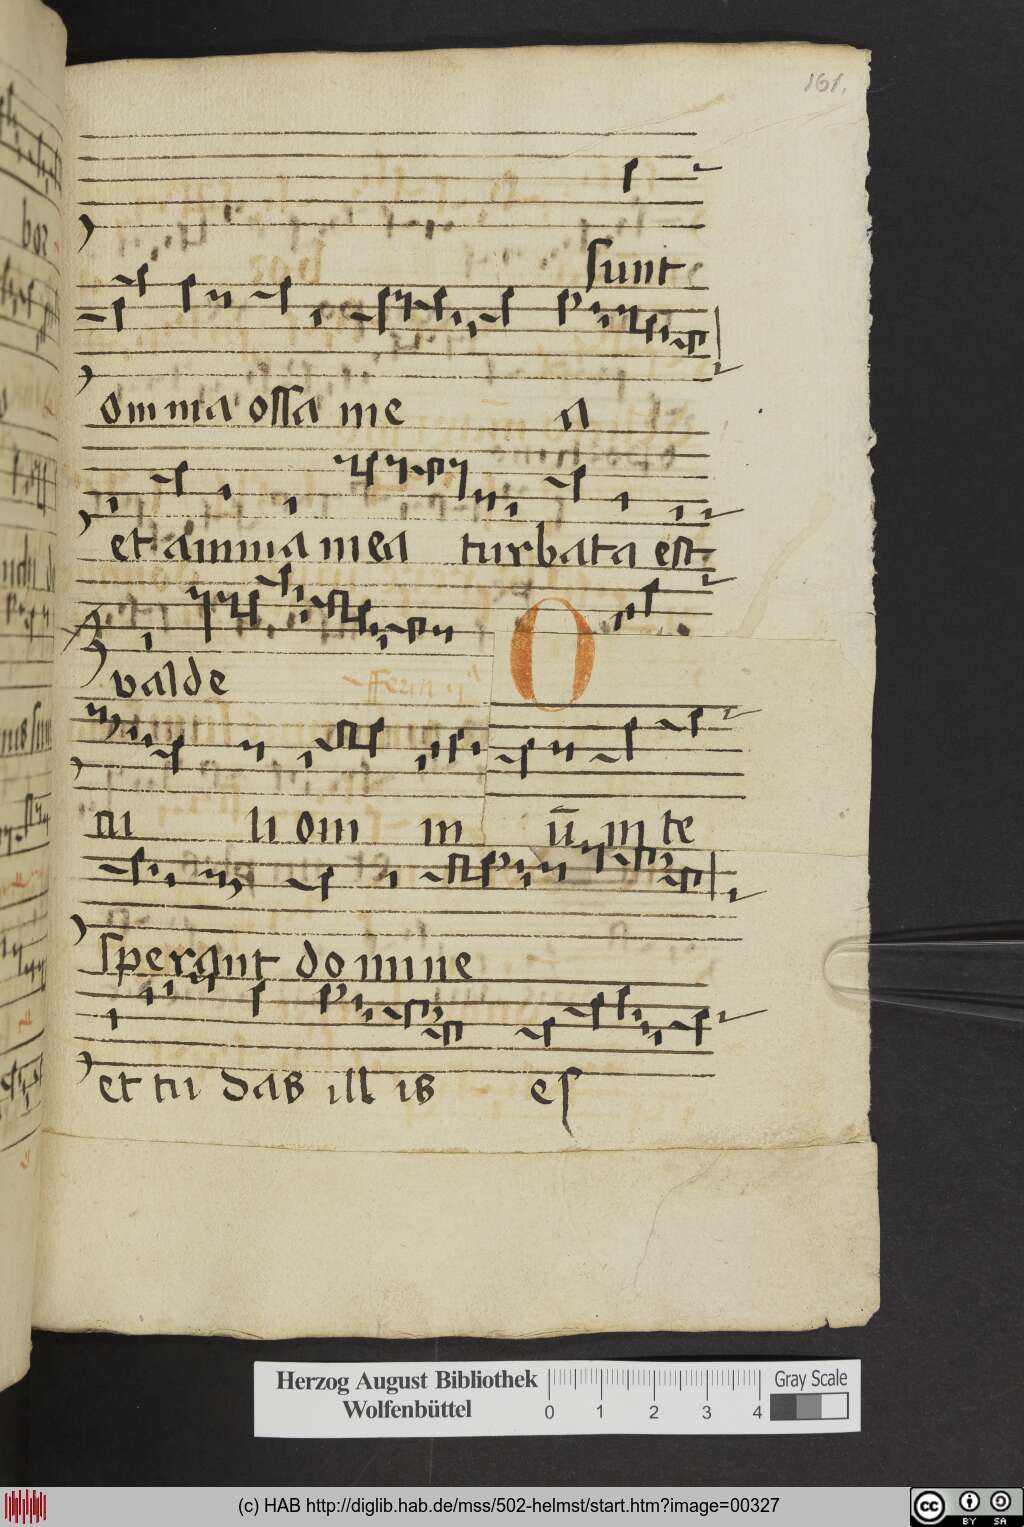 161.
sunt
omnia ossa me a
et anima mea turbata est
valde O
cu li om n iū in te
sperant domine
et tu das ill is es
Herzog August Bibliothek
Wolfenbüttel
0 1 2 3 4
Gray Scale
(c) HAB http://diglib.hab.de/mss/502-helmst/start.htm?image=00327
cc BY SA